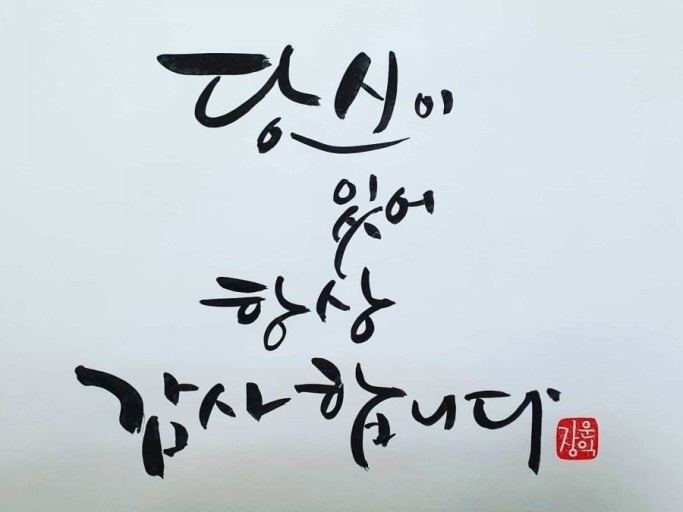 당신이
있어
항상
감사합니다
장운익